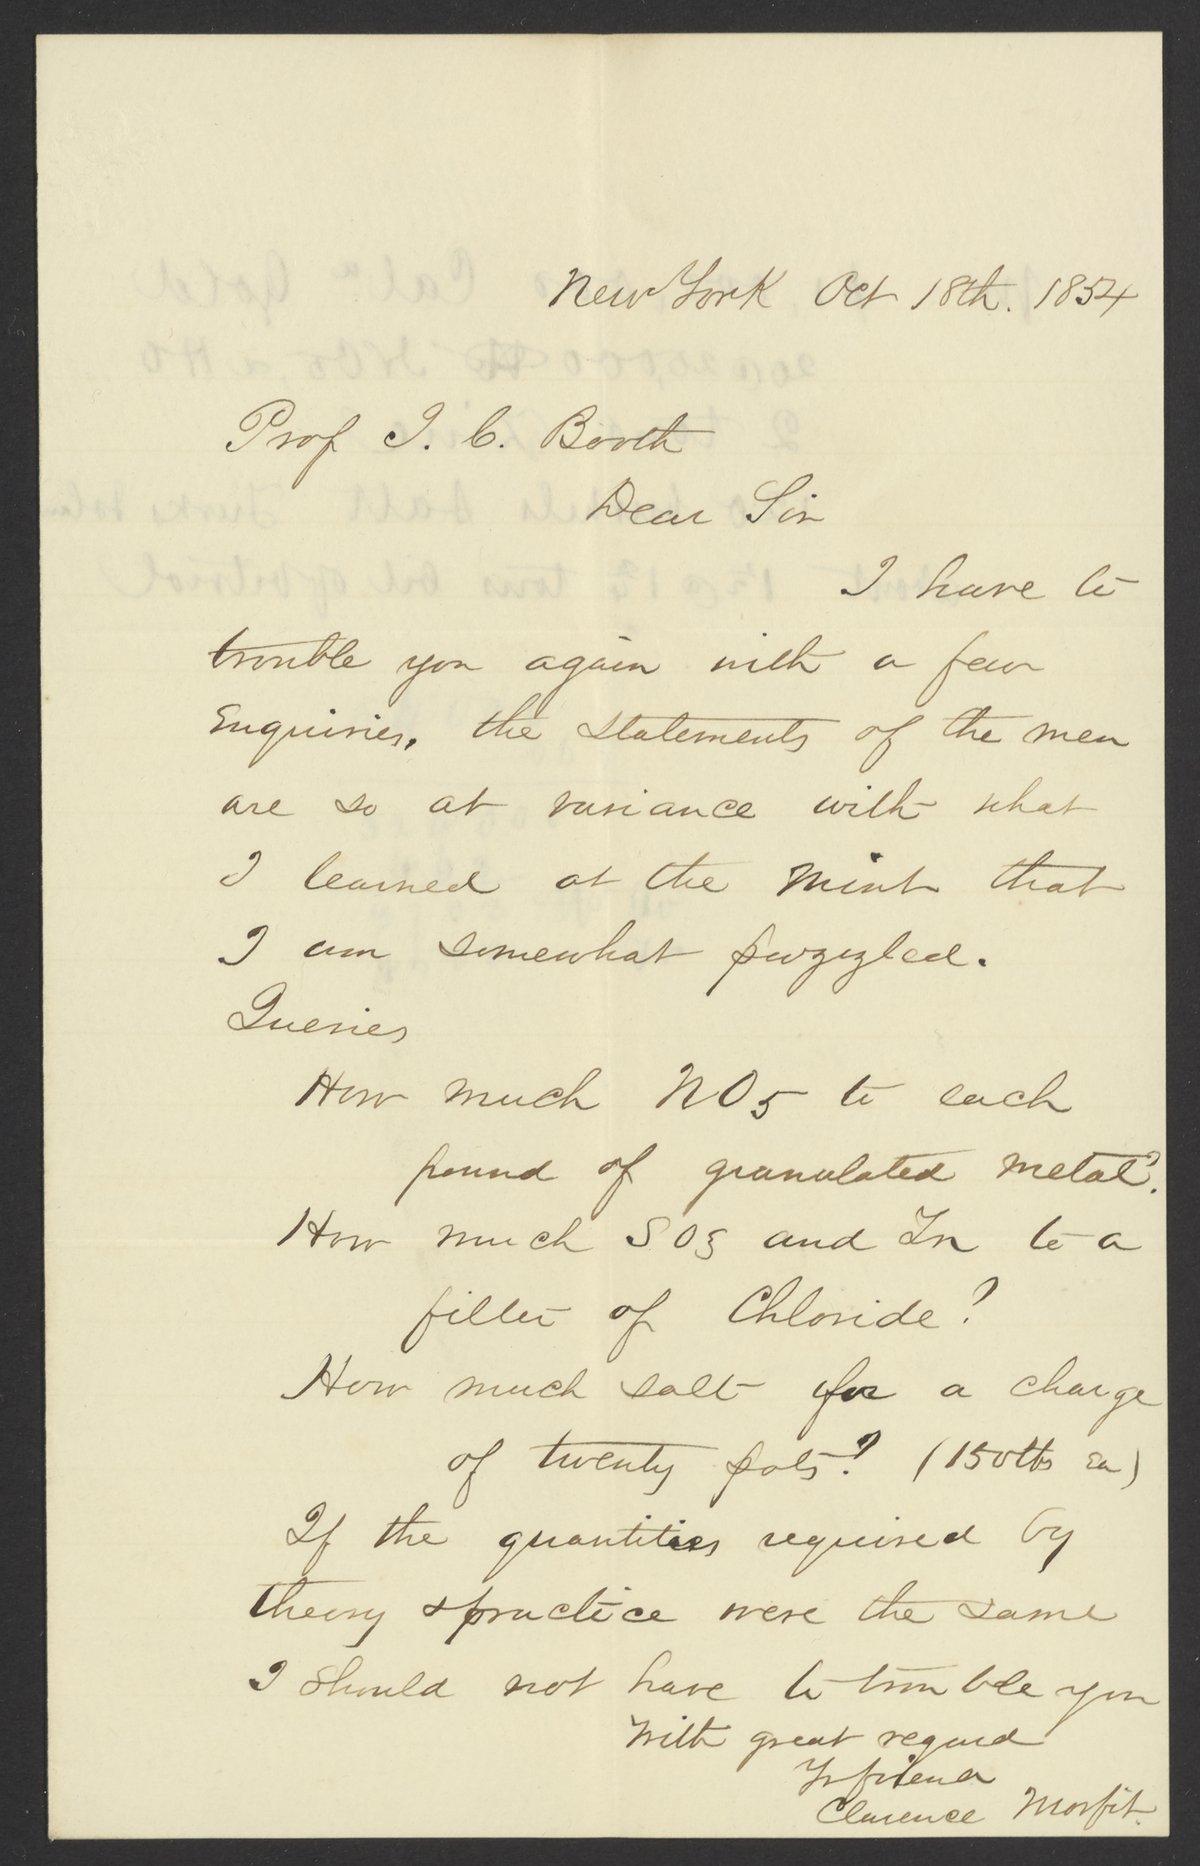 New York Oct 18th. 1854
Prof J. C. Booth
Dear Sir
I have to
trouble you again with a few
Enquiries. the statements of the men
are so at variance with what
I learned at the Mint that
I am somewhat puzzled.
Queries
How much NO5 to each
pound of granulated metal?
How much SO3 and Zn to a
filter of Chloride?
How much salt for a charge
of twenty pots? (150 lbs Ea)
If the quantities required by
theory & practice were the same
I should not have to trouble you
With great regard
Yr friend
Clarence Morfit.